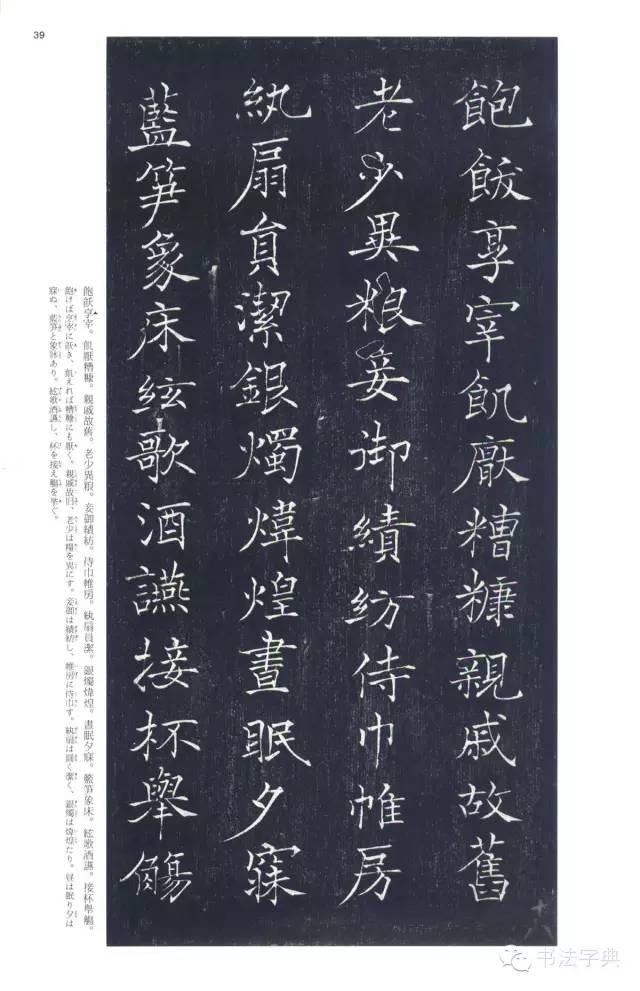 39
飽飫享宰飢厭糟糠親戚故舊
老少異粮妾御績紡侍巾帷房
紈扇員潔銀燭煒煌晝眠夕寐
藍笋象床絃歌酒讌接杯舉觴
十八
飽飫享宰。飢厭糟糠。親戚故舊。老少異粮。妾御績紡。侍巾帷房。紈扇員潔。銀燭煒煌。晝眠夕寐。藍笋象床。絃歌酒讌。接杯舉觴。
飽けば享宰に飫き、飢えれば糟糠にも厭く。親戚故旧、老少は糧を異にす。妾御は績紡し、帷房に侍巾す。紈扇は圓く潔く、銀燭は煒煌たり。昼は眠り夕は
寐ぬ、藍笋と象牀あり。絃歌酒讌し、杯を接え觴を挙ぐ。
书法字典